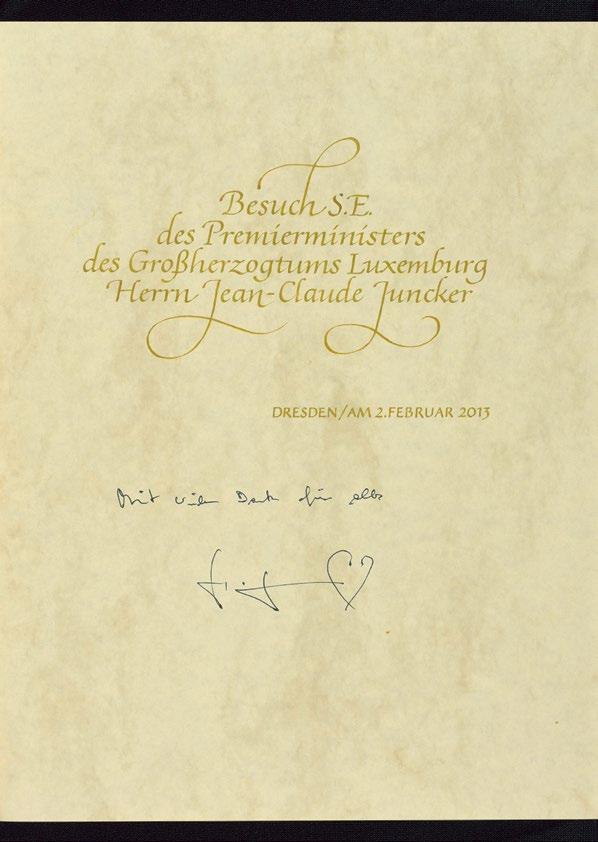 Besuch S.E.
des Premierministers
des Großherzogtums Luxemburg
Herrn Jean-Claude Juncker
DRESDEN/AM 2. FEBRUAR 2013
Mit vielem Dank für alles